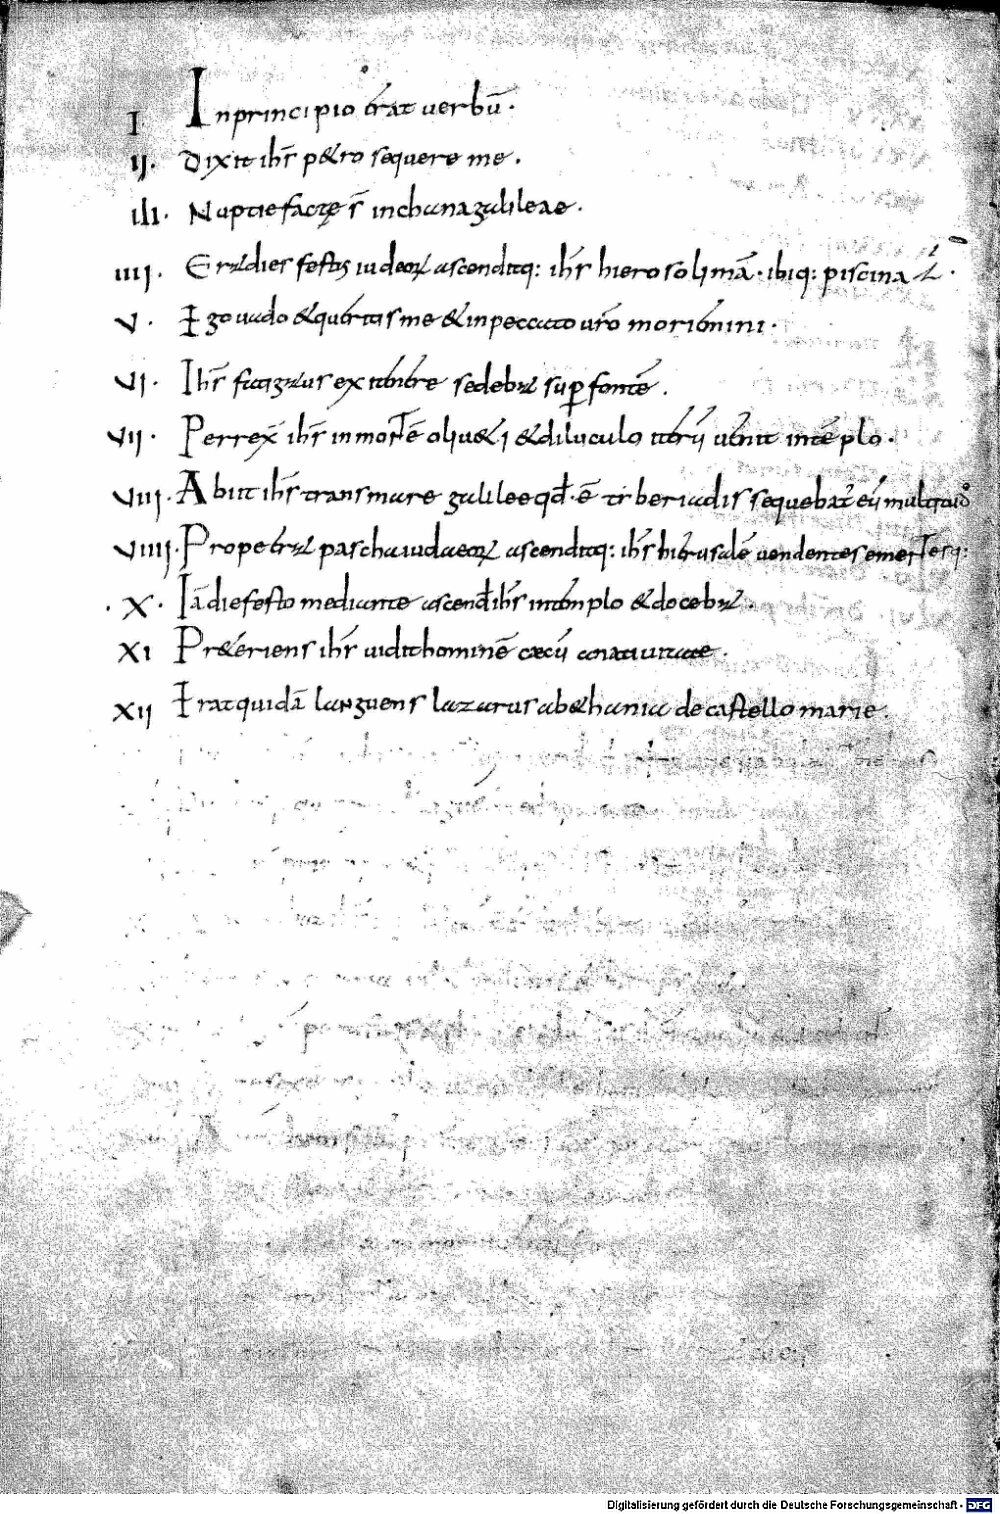 I In principio erat uerbū·
II· Dixit ihs̄ petro sequere me·
iII· Nuptie factę s̄ inchana galileae·
IIII· Erat dies festus iudeoꝝ ascenditq: ihs̄ hierosolimā· ibiq: piscina
V· Ego uado & queritis me & in peccato uro moriemini·
VI· Ihs̄ fatigatus ex itinere sedebat sup fontē·
VII· Perrex̄ ihs̄ in montē oliueti & diluculo iterū uenit in tēplo·
VIII· Abiit ihs̄ trans mare galilee qd· ē tiberiadis sequebat eū multitudo
VIIII· Prope erat pascha iudaeoꝝ ascenditq: ihs̄ hierusalē uendentes ementesq:
·X· Iā die festo mediante ascend ihs̄ in templo & docebat·
XI Pr&eriens ihs̄ uidit hominē cecū a natiuitate·
XII Erat quidā languens lazarus a b&hania de castello marie·
Digitalisierung gefördert durch die Deutsche Forschungsgemeinschaft - DFG